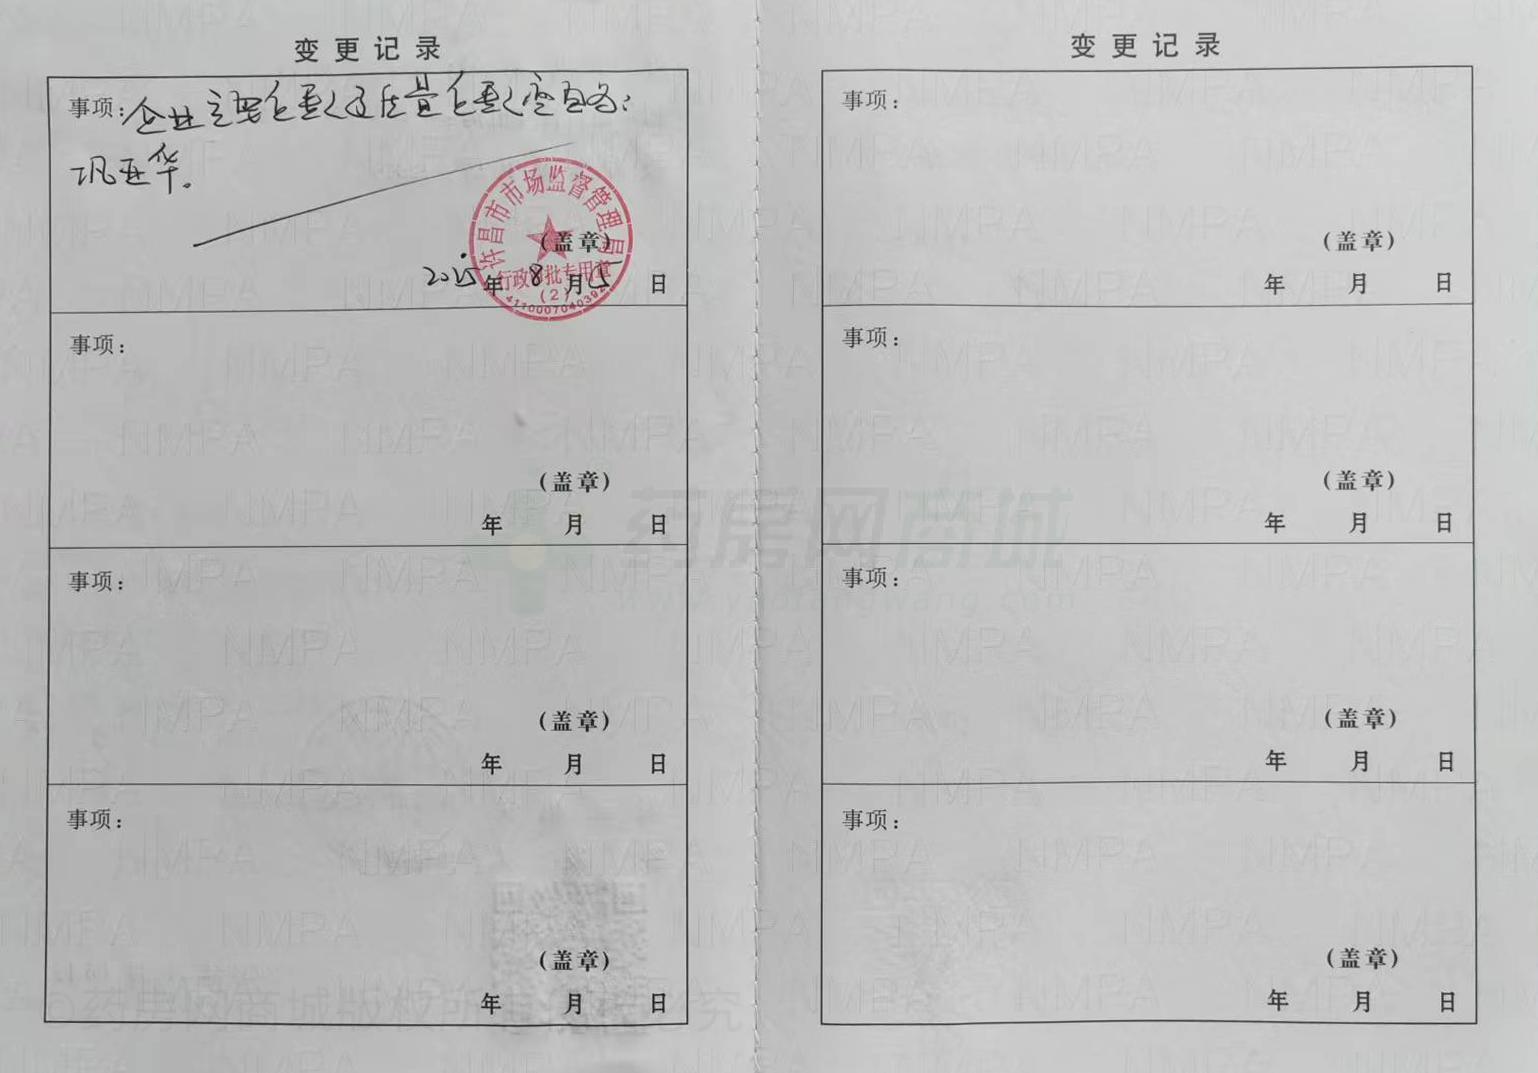 变更记录
事项:企业主要负责人及质量负责人变更为:
巩亚华。
许昌市市场监督管理局
行政审批专用章
(2)
(盖章)
2025年8月15日
事项:
(盖章)
年 月 日
事项:
(盖章)
年 月 日
事项:
(盖章)
年 月 日
变更记录
事项:
(盖章)
年 月 日
事项:
(盖章)
年 月 日
事项:
(盖章)
年 月 日
事项:
(盖章)
年 月 日
药房网商城
www.yaofangwang.com
NMPA
©药房网商城版权所